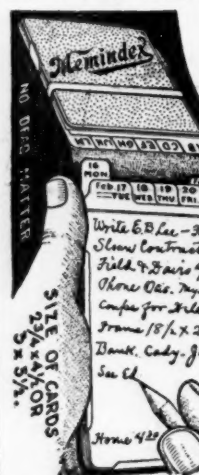 Memindex
NO DEAD MATTER
16
MON
Feb 17 18 19 20
TUE WED THU FRI
Write E.B. Lee –
Slow Contract
Field & Davis
Phone Geo.
Confer for
Frame 18/2 x 2
Bank. Cady-
See Ed.
Home 4 30
SIZE OF CARDS
2 3/4 x 4 1/2 OR
3 x 5 1/2.